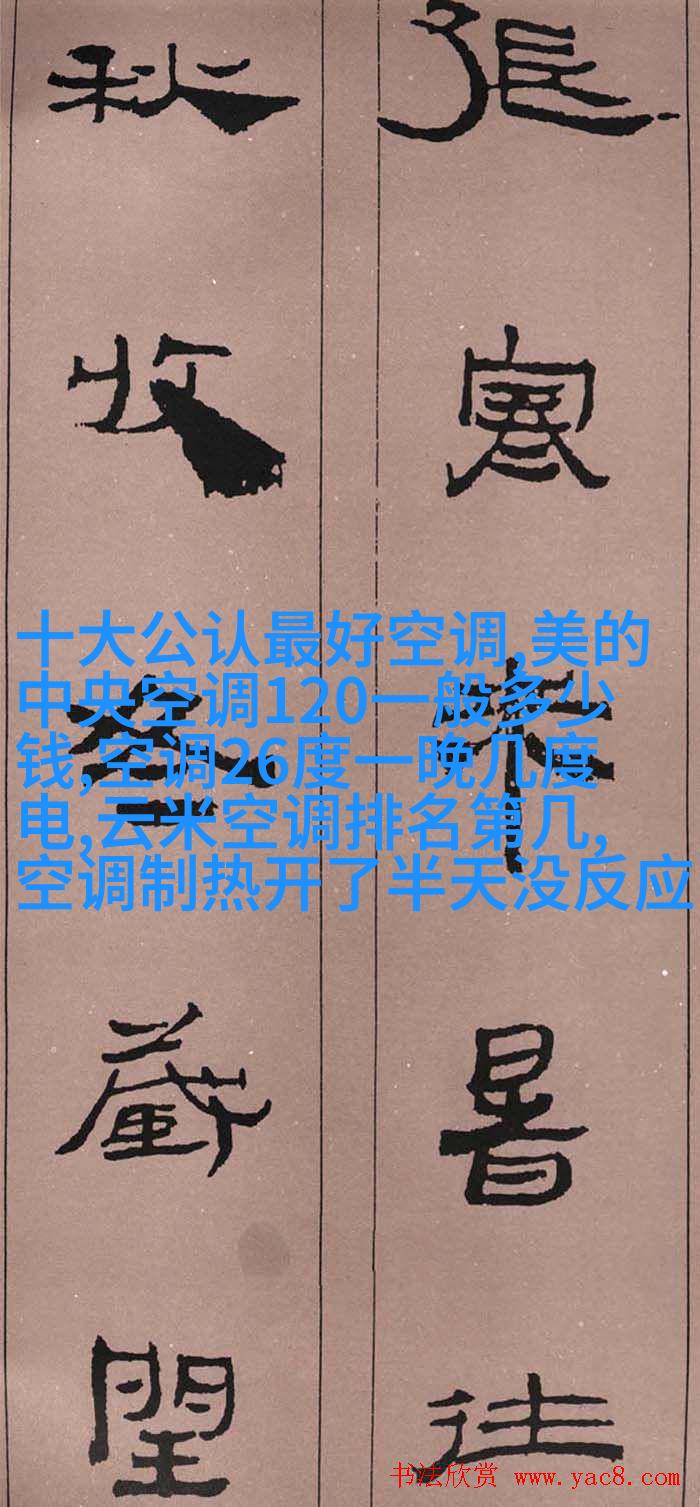 張寒來暑往
秋收冬藏閏
十大公认最好空调,美的
中央空调120一般多少
钱,空调26度一晚几度
电,云米空调排名第几,
空调制热开了半天没反应
书法欣赏 www.yac8.com